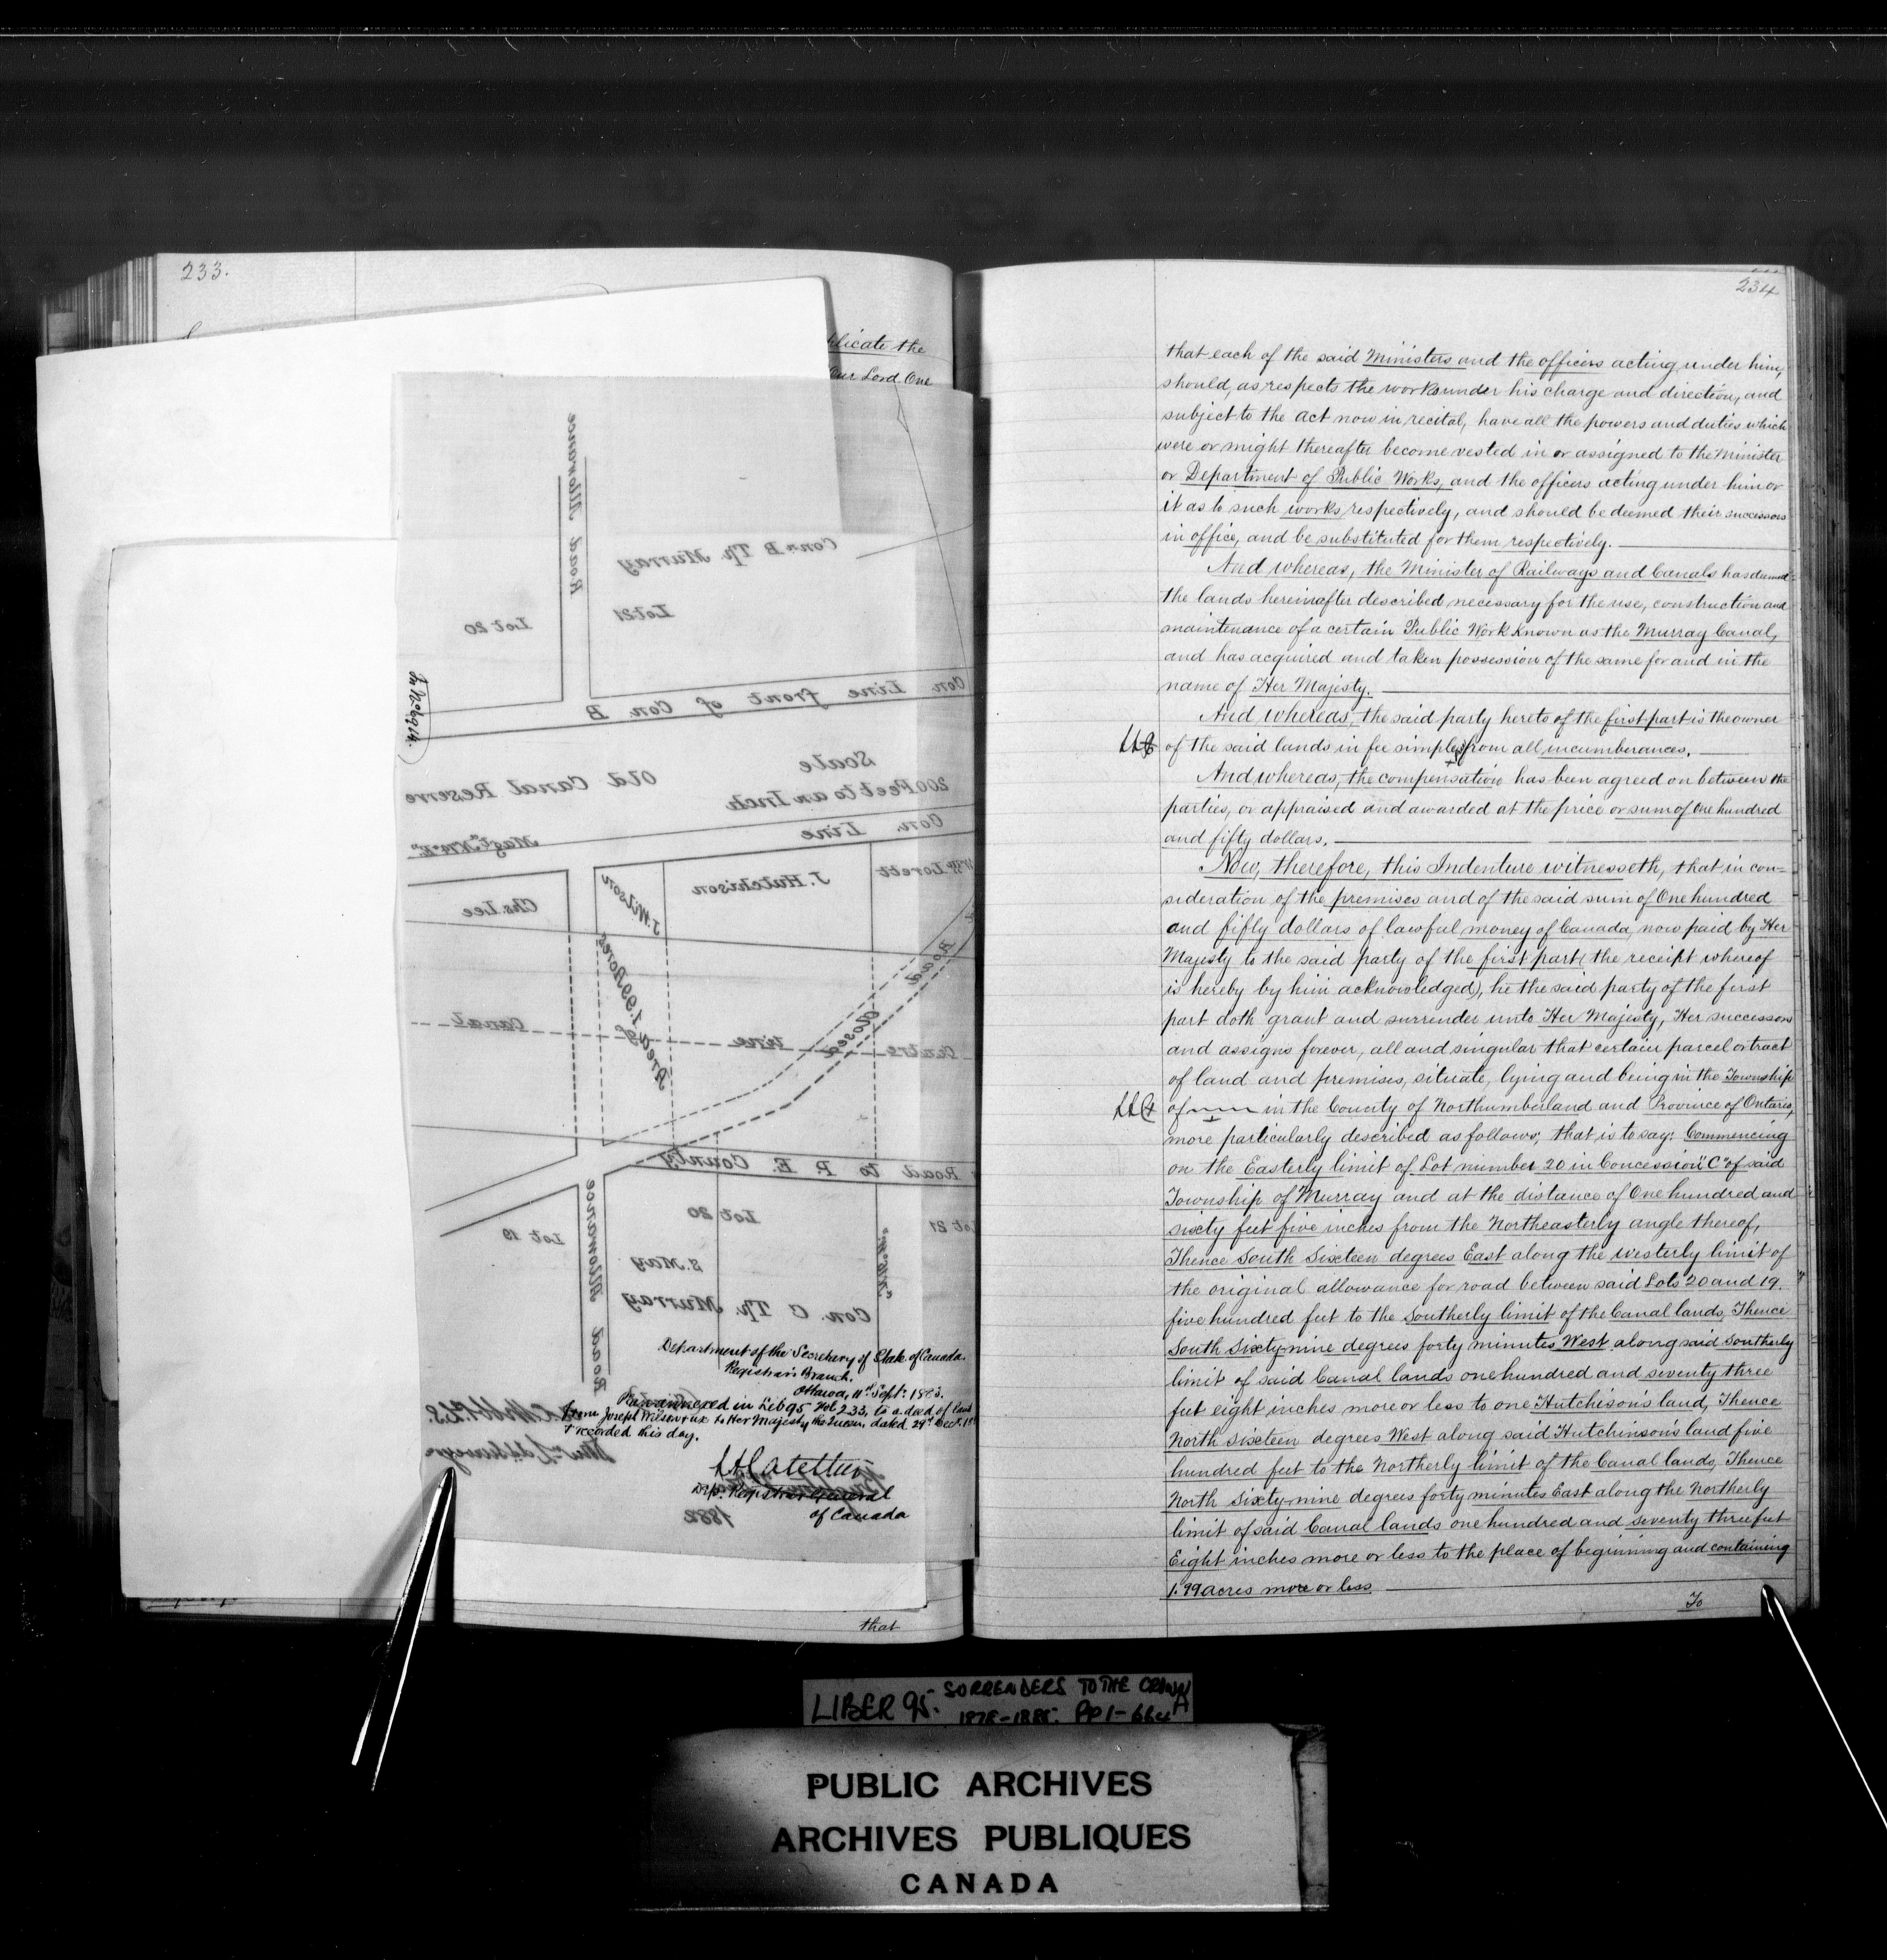 233.
plicate the
Our Lord One
Road Allowance
Con. B Tp. Murray
Lot 21
Lot 20
Con Line front of Con. B
Scale
200 Feet to an Inch
Old Canal Reserve
Con. Line
Chs. Lee
J. Wilson
J. Hutchison
Lovett
Area of 1.99 Acres
Road
Closed
Centre line Canal
Road to P. E. County
Lot 19
Lot 20
Lot 21
Road Allowance
S. May
Con. C Tp. Murray
Department of the Secretary of State of Canada.
Registrar's Branch.
Ottawa, 11th Sept. 1883.
annexed in Lib 95 Fol 233, to a deed of land
from Joseph Wilson & ux to Her Majesty the Queen, dated 29th Decr.
& recorded this day.
Dep. Registrar General
of Canada
1882
that
234
that each of the said Ministers and the officers acting under him,
should, as respects the works under his charge and direction, and
subject to the act now in recital, have all the powers and duties which
were or might thereafter become vested in or assigned to the Minister
or Department of Public Works, and the officers acting under him or
it as to such works respectively, and should be deemed their successors
in office, and be substituted for them respectively.
And whereas, the Minister of Railways and Canals has deemed
the lands hereinafter described necessary for the use, construction and
maintenance of a certain Public Work known as the Murray Canal,
and has acquired and taken possession of the same for and in the
name of Her Majesty.
And whereas, the said party hereto of the first part is the owner
of the said lands in fee simple from all incumberances.
And whereas, the compensation has been agreed on between the
parties, or appraised and awarded at the price or sum of One hundred
and fifty dollars.
Now, therefore, this Indenture witnesseth, that in con-
sideration of the premises and of the said sum of One hundred
and fifty dollars of lawful money of Canada, now paid by Her
Majesty to the said party of the first part (the receipt whereof
is hereby by him acknowledged), he the said party of the first
part doth grant and surrender unto Her Majesty, Her successors
and assigns forever, all and singular that certain parcel or tract
of land and premises, situate, lying and being in the Township
of in the County of Northumberland and Province of Ontario,
more particularly described as follows; that is to say: Commencing
on the Easterly limit of Lot number 20 in Concession "C" of said
Township of Murray and at the distance of One hundred and
sixty feet five inches from the Northeasterly angle thereof,
Thence South Sixteen degrees East along the westerly limit of
the original allowance for road between said Lots 20 and 19.
five hundred feet to the Southerly limit of the Canal lands, Thence
South Sixty-nine degrees forty minutes West along said Southerly
limit of said Canal lands one hundred and seventy three
feet eight inches more or less to one Hutchison's land, Thence
North Sixteen degrees West along said Hutchinson's land five
hundred feet to the Northerly limit of the Canal lands, Thence
North Sixty-nine degrees forty minutes East along the Northerly
limit of said Canal lands one hundred and seventy three feet
Eight inches more or less to the place of beginning and containing
1.99 acres more or less
To
LIBER 95. SURRENDERS TO THE CROWN
PUBLIC ARCHIVES
ARCHIVES PUBLIQUES
CANADA